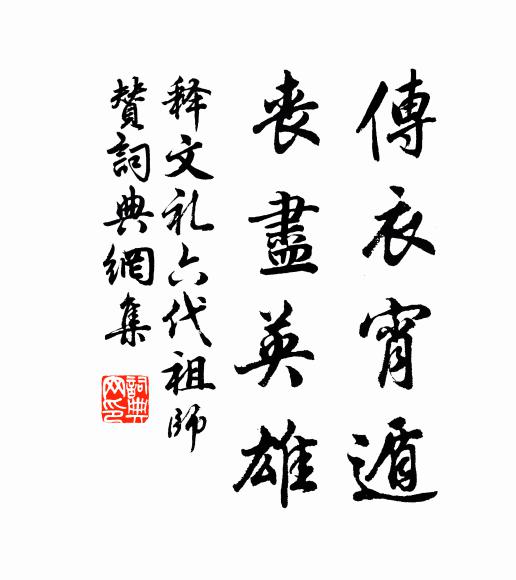 傳衣宵遁
喪盡英雄
释文礼六代祖師
贊詞典網集
詞典网印